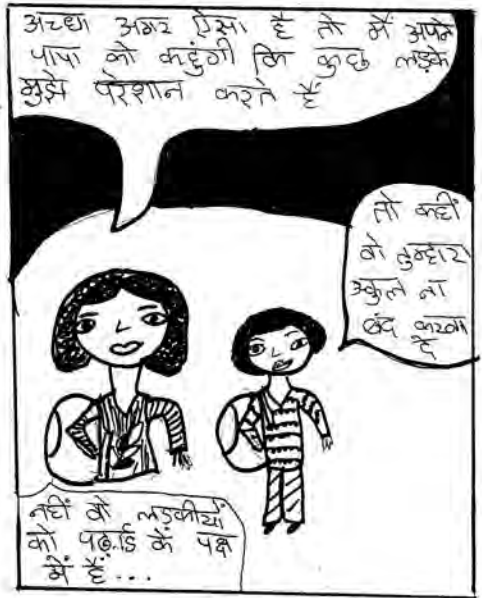 अच्छा अगर ऐसा है तो मैं अपने
पापा को कहुंगी कि कुछ लड़के
मुझे परेशान करते हैं
तो कहीं
वो तुम्हारा
स्कुल ना
बंद करवा
दे
नहीं वो लड़कीयों
को पढ़ाई के पक्ष
में हैं...